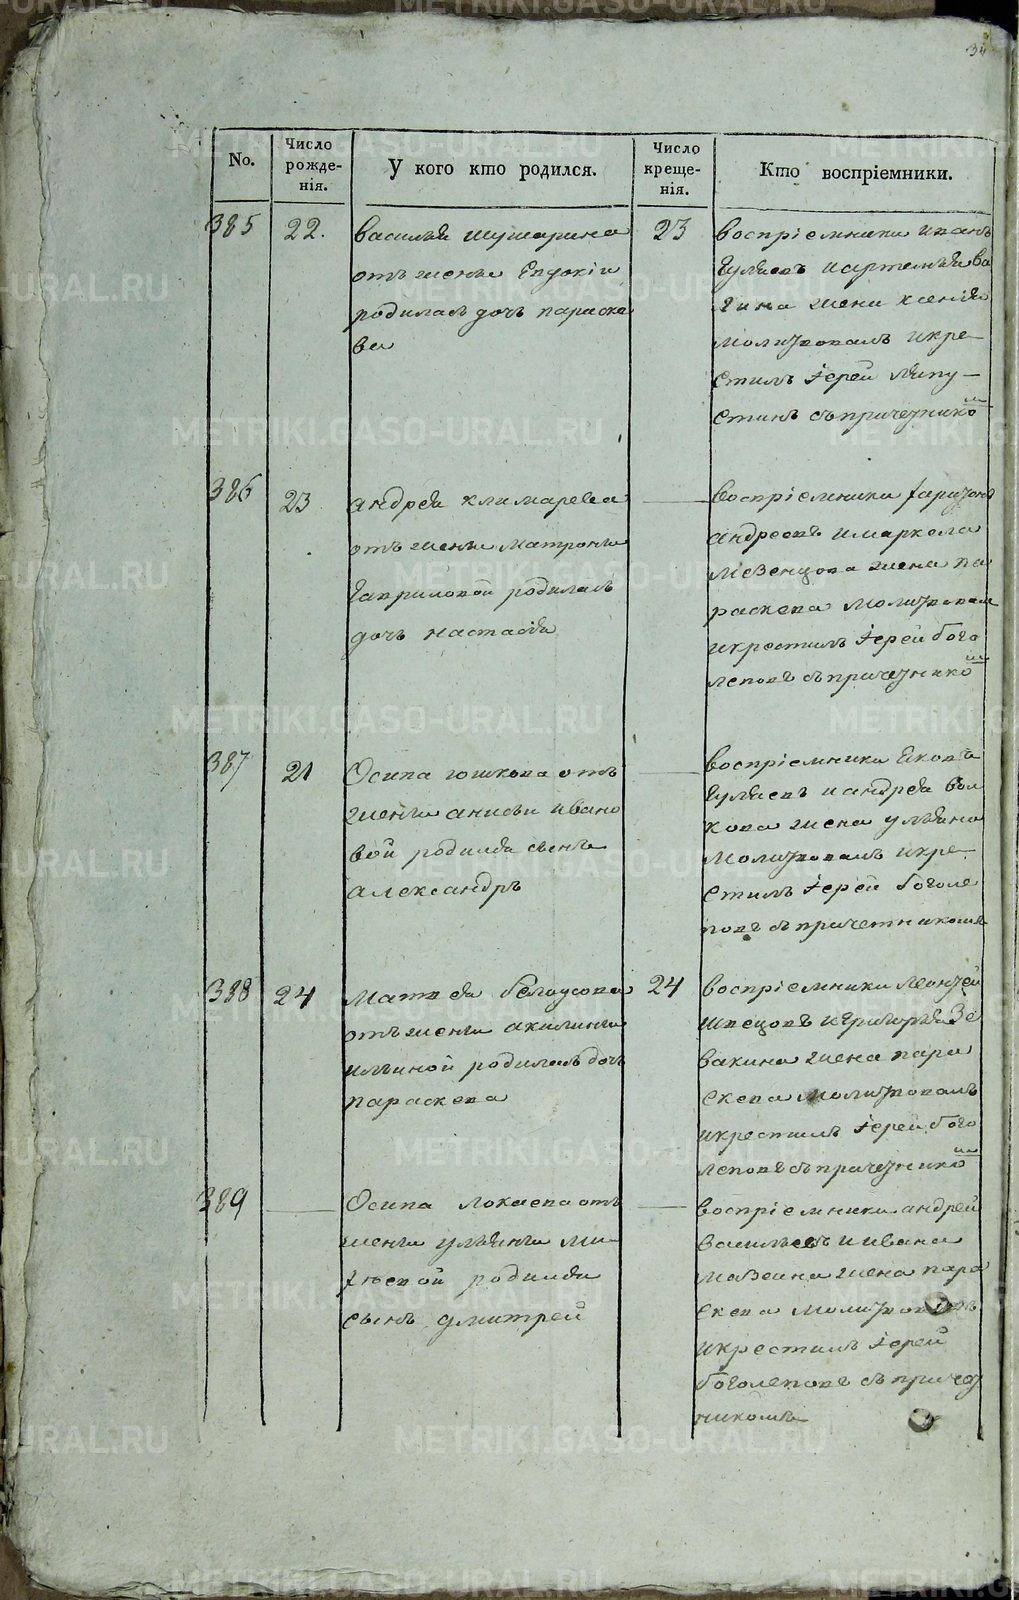 34
No.
Число рожде-нія.
У кого кто родился.
Число креще-нія.
Кто воспріемники.
385
22.
василья шушарина
отъ жены Евдокіи
родилась дочь параске
ва
23
воспріемники иванъ
Гуляевъ иартемья ва
гина жена ксенія
молитвовалъ икре-
стилъ Іерей
стинъ съпричетнико
386
23
андрея климарева
отъ жены матроны
Гавриловой родилась
дочь настасія
воспріемники
андреевъ имаркела
мезенцова жена па
раскева молитвовалъ
икрестилъ Іерей бого
леповъ съпричетнико
387
21
Осипа юшкова отъ
жены анисьи ивано
вой родился сынъ
александръ
воспріемники Яковъ
Гуляевъ иандрея вол
кова жена ульяна
молитвовалъ икре-
стилъ Іерей боголе
повъ съпричетникомъ
388
24
Матвея белоусова
отъ жены акилины
ильиной родилась дочь
параскева
24
воспріемники
швецовъ игригорья Зе
вакина жена пара
скева молитвовалъ
икрестилъ Іерей бого
леповъ съпричетнико
389
Осипа локаева отъ
жены ульяны ми
родился
сынъ дмитрей
воспріемники андрей
васильевъ иивана
мазеина жена пара
скева молитвовалъ
икрестилъ Іерей
боголеповъ съпричет
никомъ
METRIKI.GASO-URAL.RU